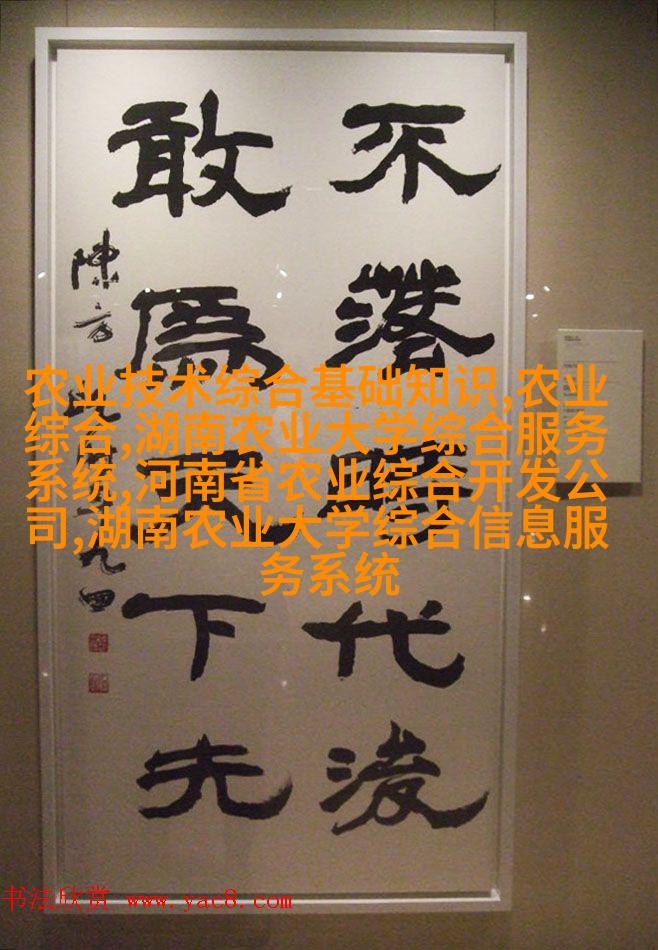 不落時代後
敢為天下先
农业技术综合基础知识,农业
综合,湖南农业大学综合服务
系统,河南省农业综合开发公
司,湖南农业大学综合信息服
务系统
书法欣赏 www.yac8.com